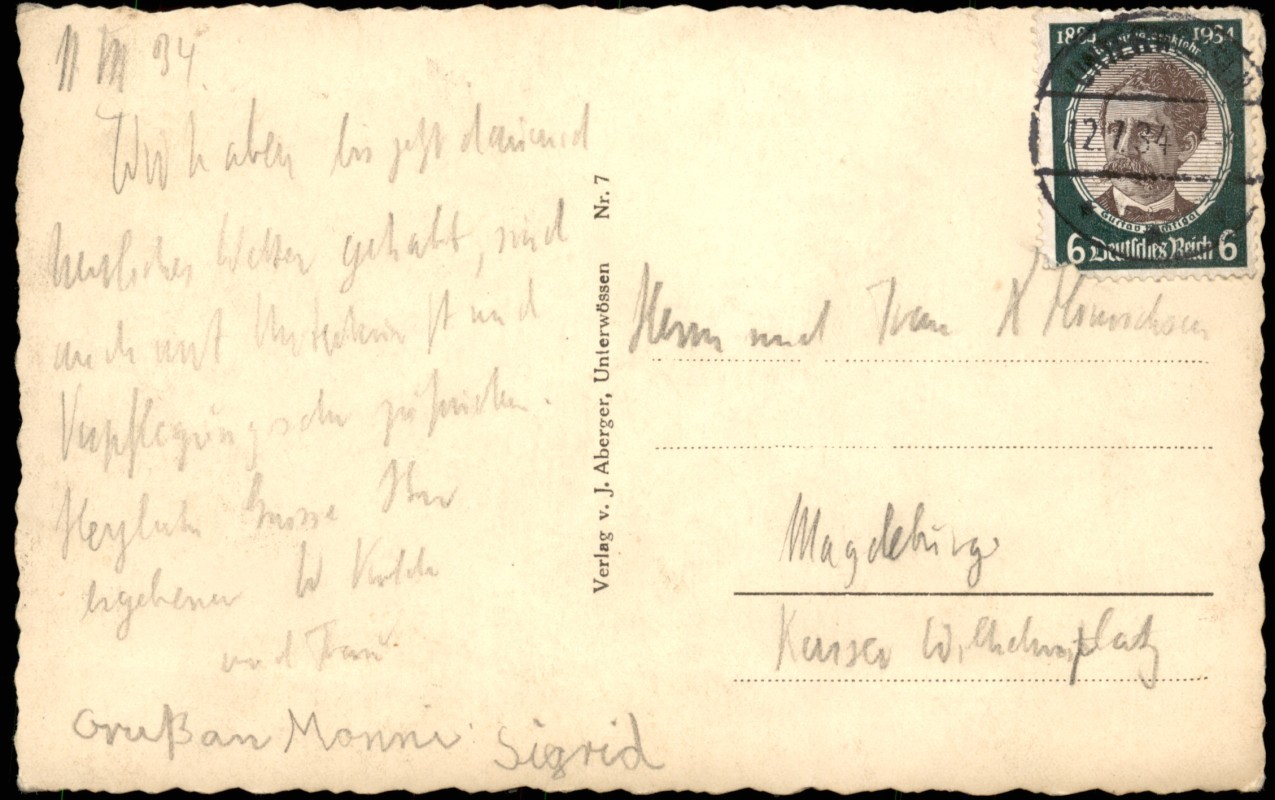 34
Wir haben bis jetzt dauernd
herrliches Wetter gehabt, sind
auch mit Unterkunft und
Verpflegung sehr zufrieden.
Herzliche Grüsse Ihr
ergebener W
und Frau
Gruß an Manni Sigrid
Verlag v. J. Aberger, Unterwössen Nr. 7
1934
Deutsches Kolonialjahr
12.7.34
Gustav Nachtigal
6 Deutsches Reich 6
Herrn und Frau
Magdeburg
Kaiser Wilhelmplatz